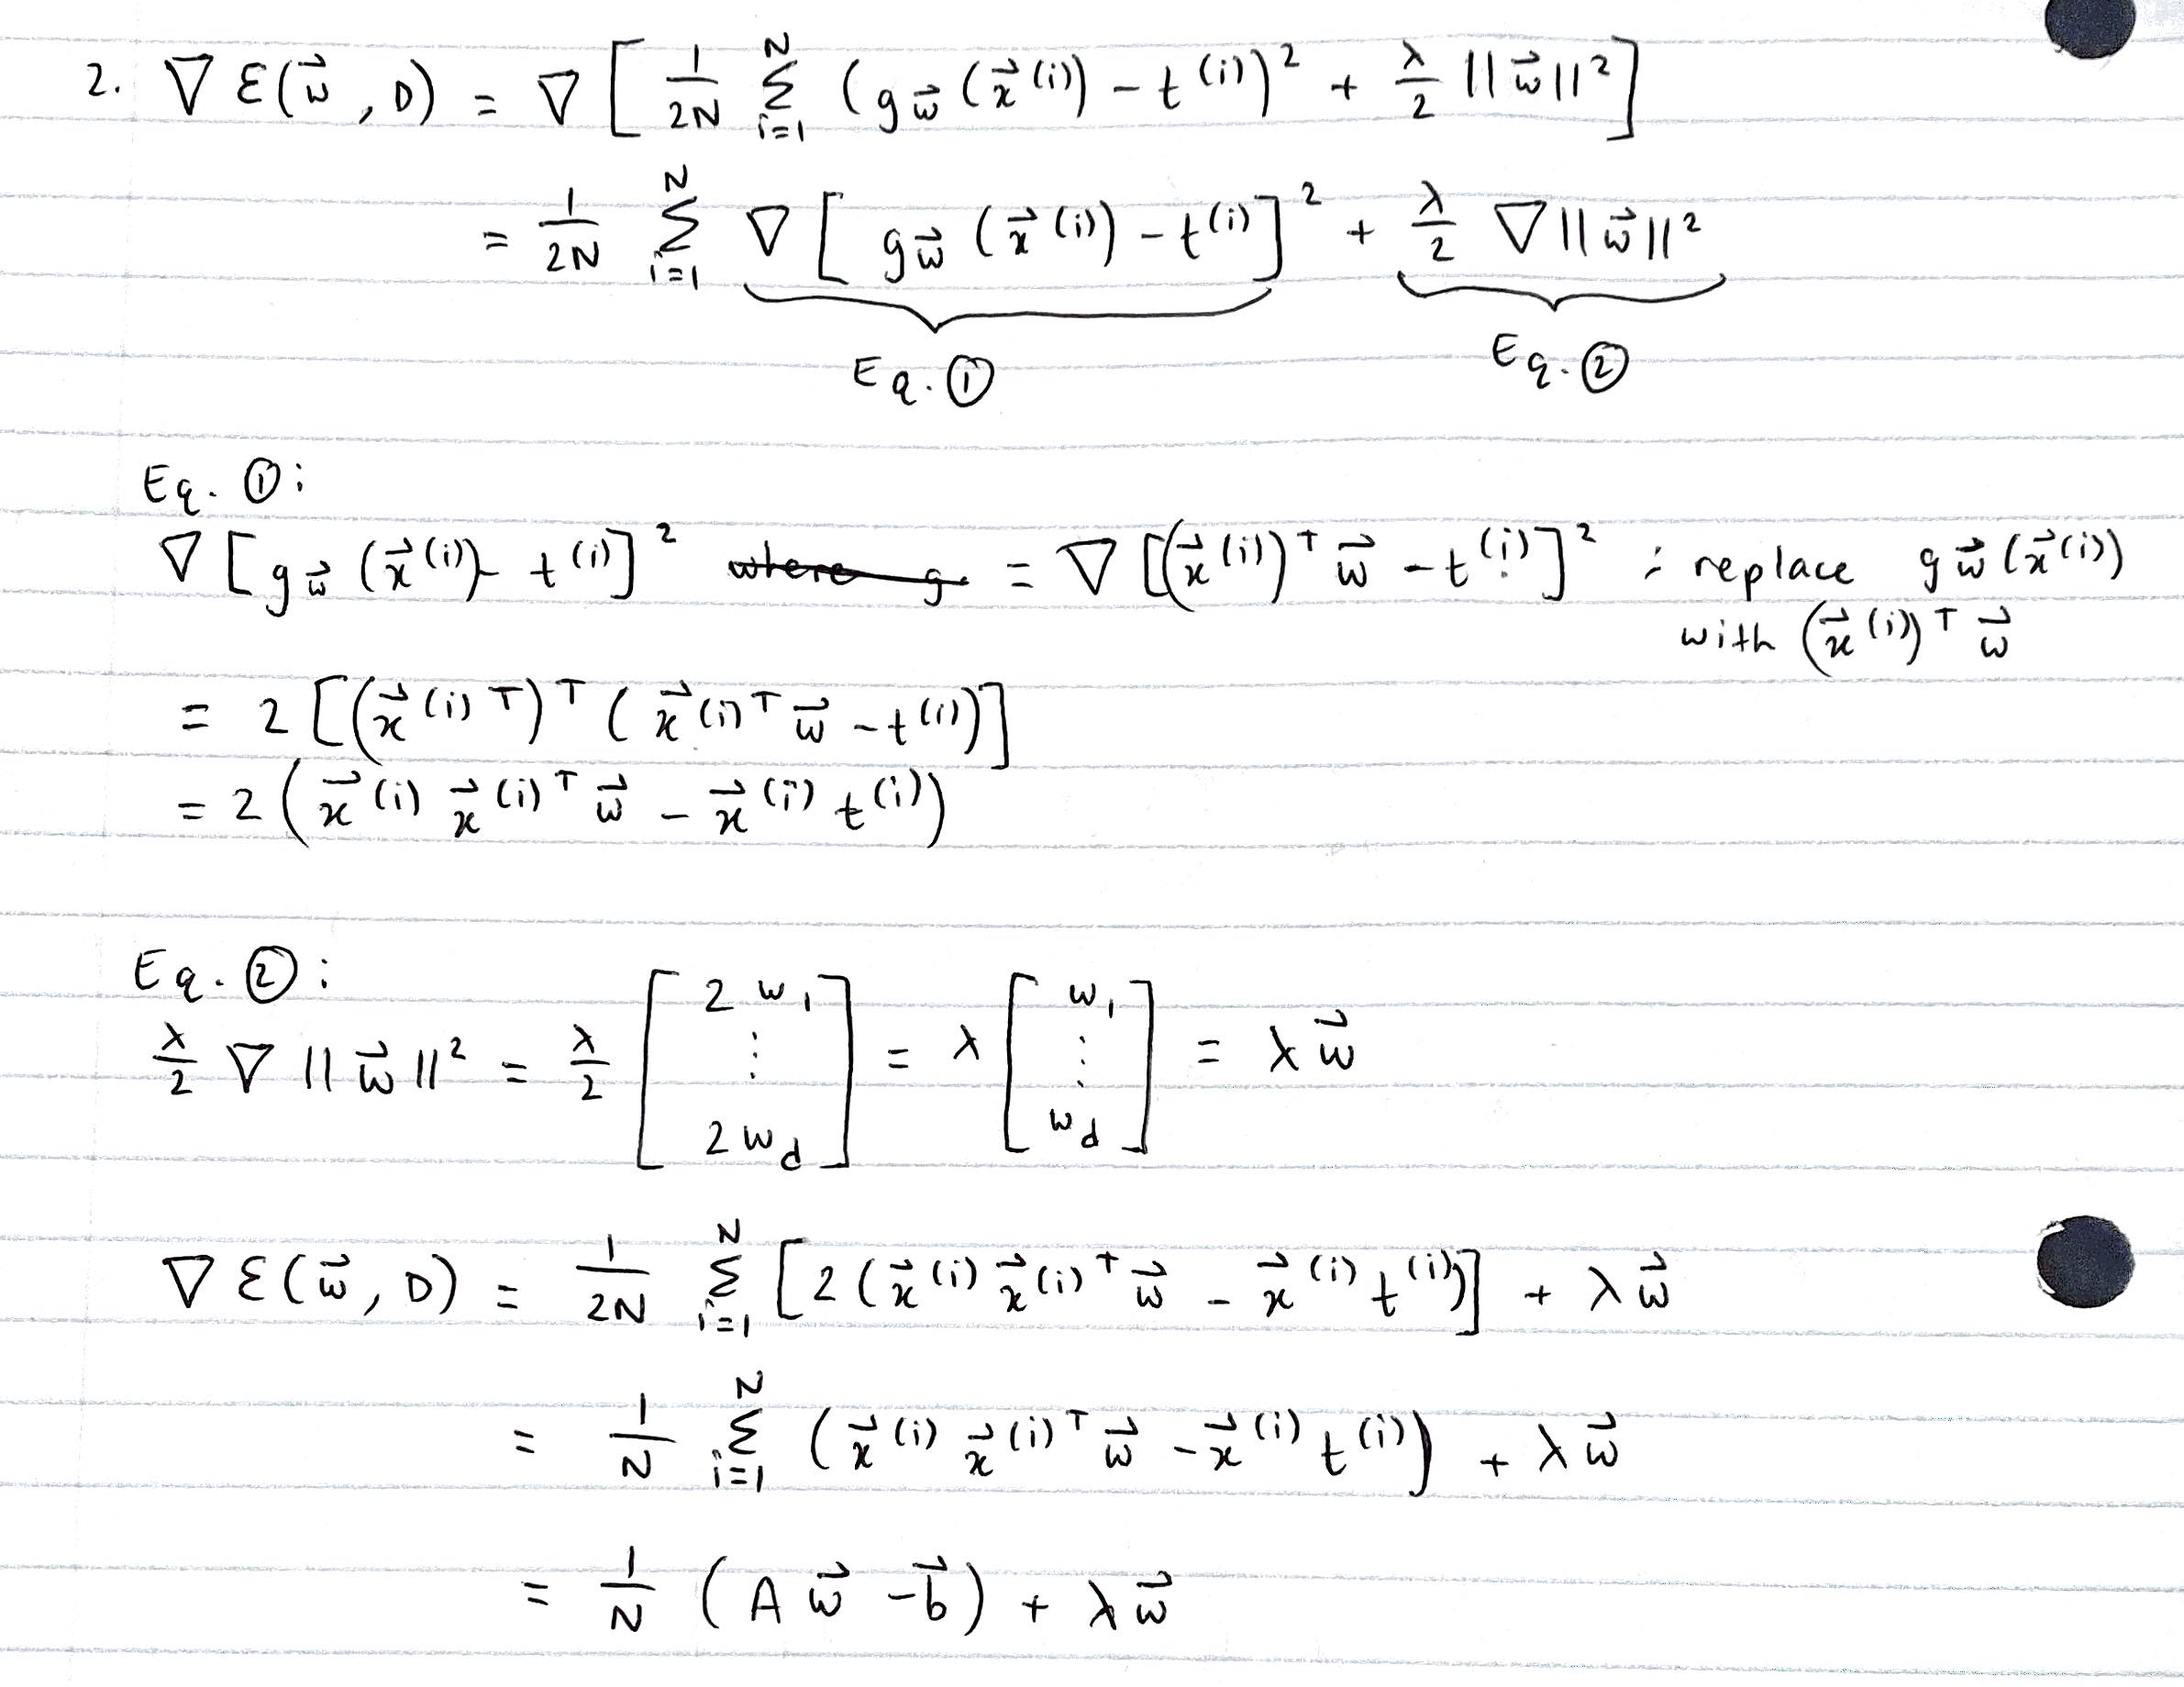 2. ∇ℰ(w⃗, D) = ∇[ 1/2N Σ_{i=1}^{N} (g_w⃗(x⃗^(i)) - t^(i))² + λ/2 ||w⃗||² ]
= 1/2N Σ_{i=1}^{N} ∇[ g_w⃗(x⃗^(i)) - t^(i) ]² + λ/2 ∇||w⃗||²
Eq. ① Eq. ②
Eq. ①:
∇[g_w⃗(x⃗^(i)) - t^(i)]² ~~where g~~ = ∇[(x⃗^(i))^T w⃗ - t^(i)]² : replace g_w⃗(x⃗^(i))
with (x⃗^(i))^T w⃗
= 2[(x⃗^(i)T)^T (x⃗^(i)T w⃗ - t^(i))]
= 2(x⃗^(i) x⃗^(i)T w⃗ - x⃗^(i) t^(i))
Eq. ②:
λ/2 ∇||w⃗||² = λ/2 [2w₁ ⋮ 2w_d] = λ [w₁ ⋮ w_d] = λw⃗
∇ℰ(w⃗, D) = 1/2N Σ_{i=1}^{N} [2(x⃗^(i) x⃗^(i)T w⃗ - x⃗^(i) t^(i))] + λw⃗
= 1/N Σ_{i=1}^{N} (x⃗^(i) x⃗^(i)T w⃗ - x⃗^(i) t^(i)) + λw⃗
= 1/N (Aw⃗ - b⃗) + λw⃗